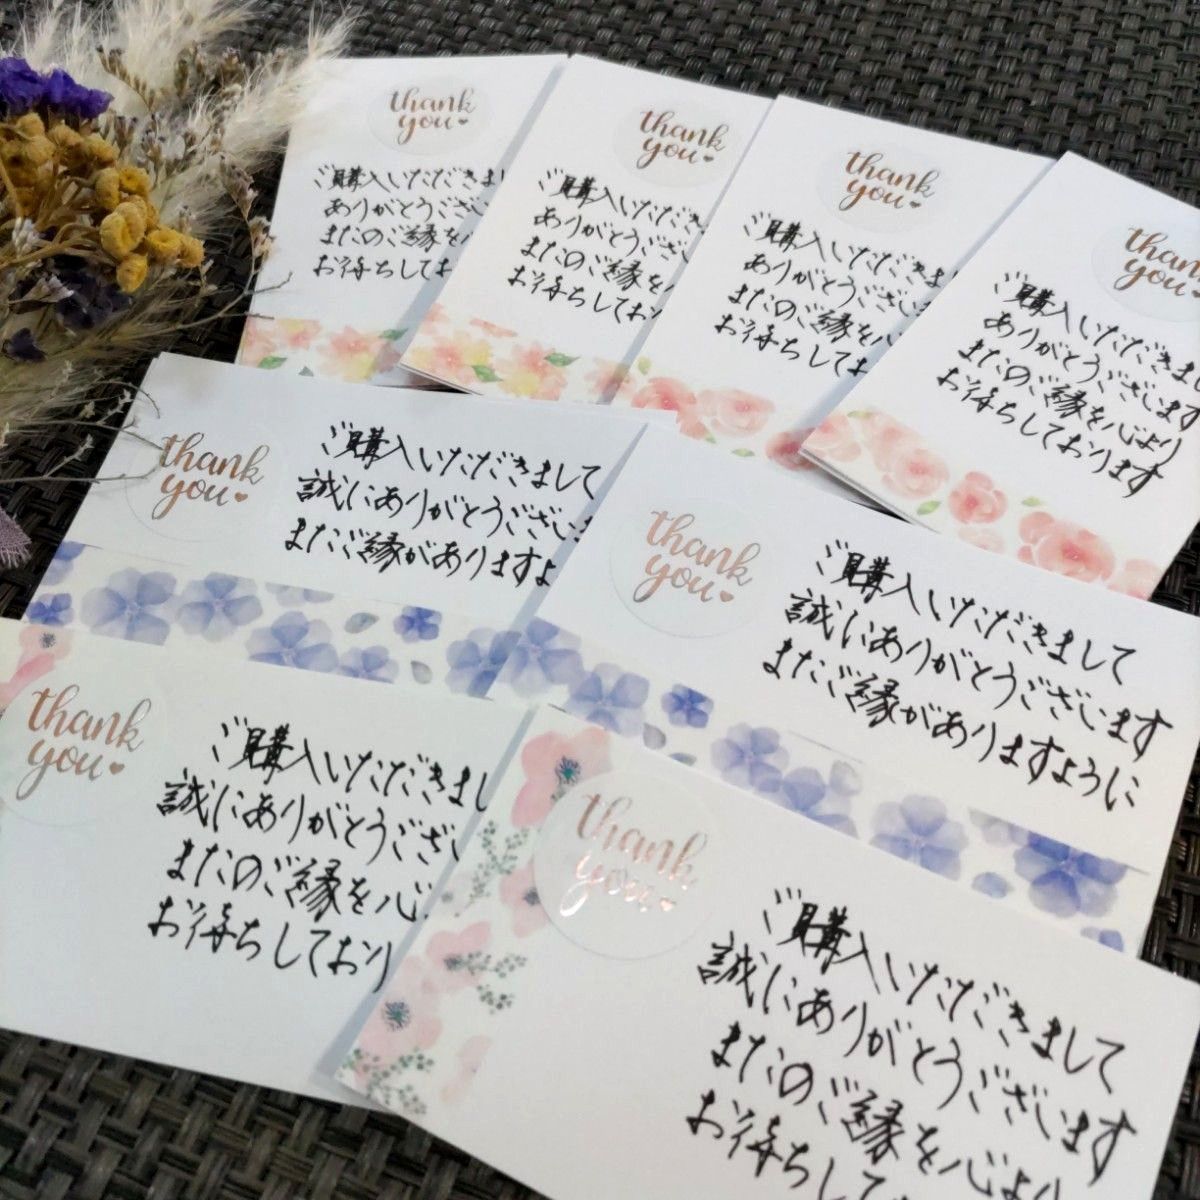 thank
you
ご購入いただきまし
ありがとうござい
またのご縁を心
お待ちしており
thank
you
ご購入いただきま
ありがとうござい
またのご縁を心
お待ちしており
thank
you
ご購入いただきまし
ありがとうございま
またのご縁を心
お待ちしてお
than
you
ご購入いただきまし
ありがとうございます
またのご縁を心より
お待ちしております
thank
you
ご購入いただきまして
誠にありがとうござい
またご縁がありますよ
thank
you
ご購入いただきまして
誠にありがとうございます
またご縁がありますように
thank
you
ご購入いただきまし
誠にありがとうござい
またのご縁を心
お待ちしており
thank
you
ご購入いただきまして
誠にありがとうございます
またのご縁を心より
お待ちして